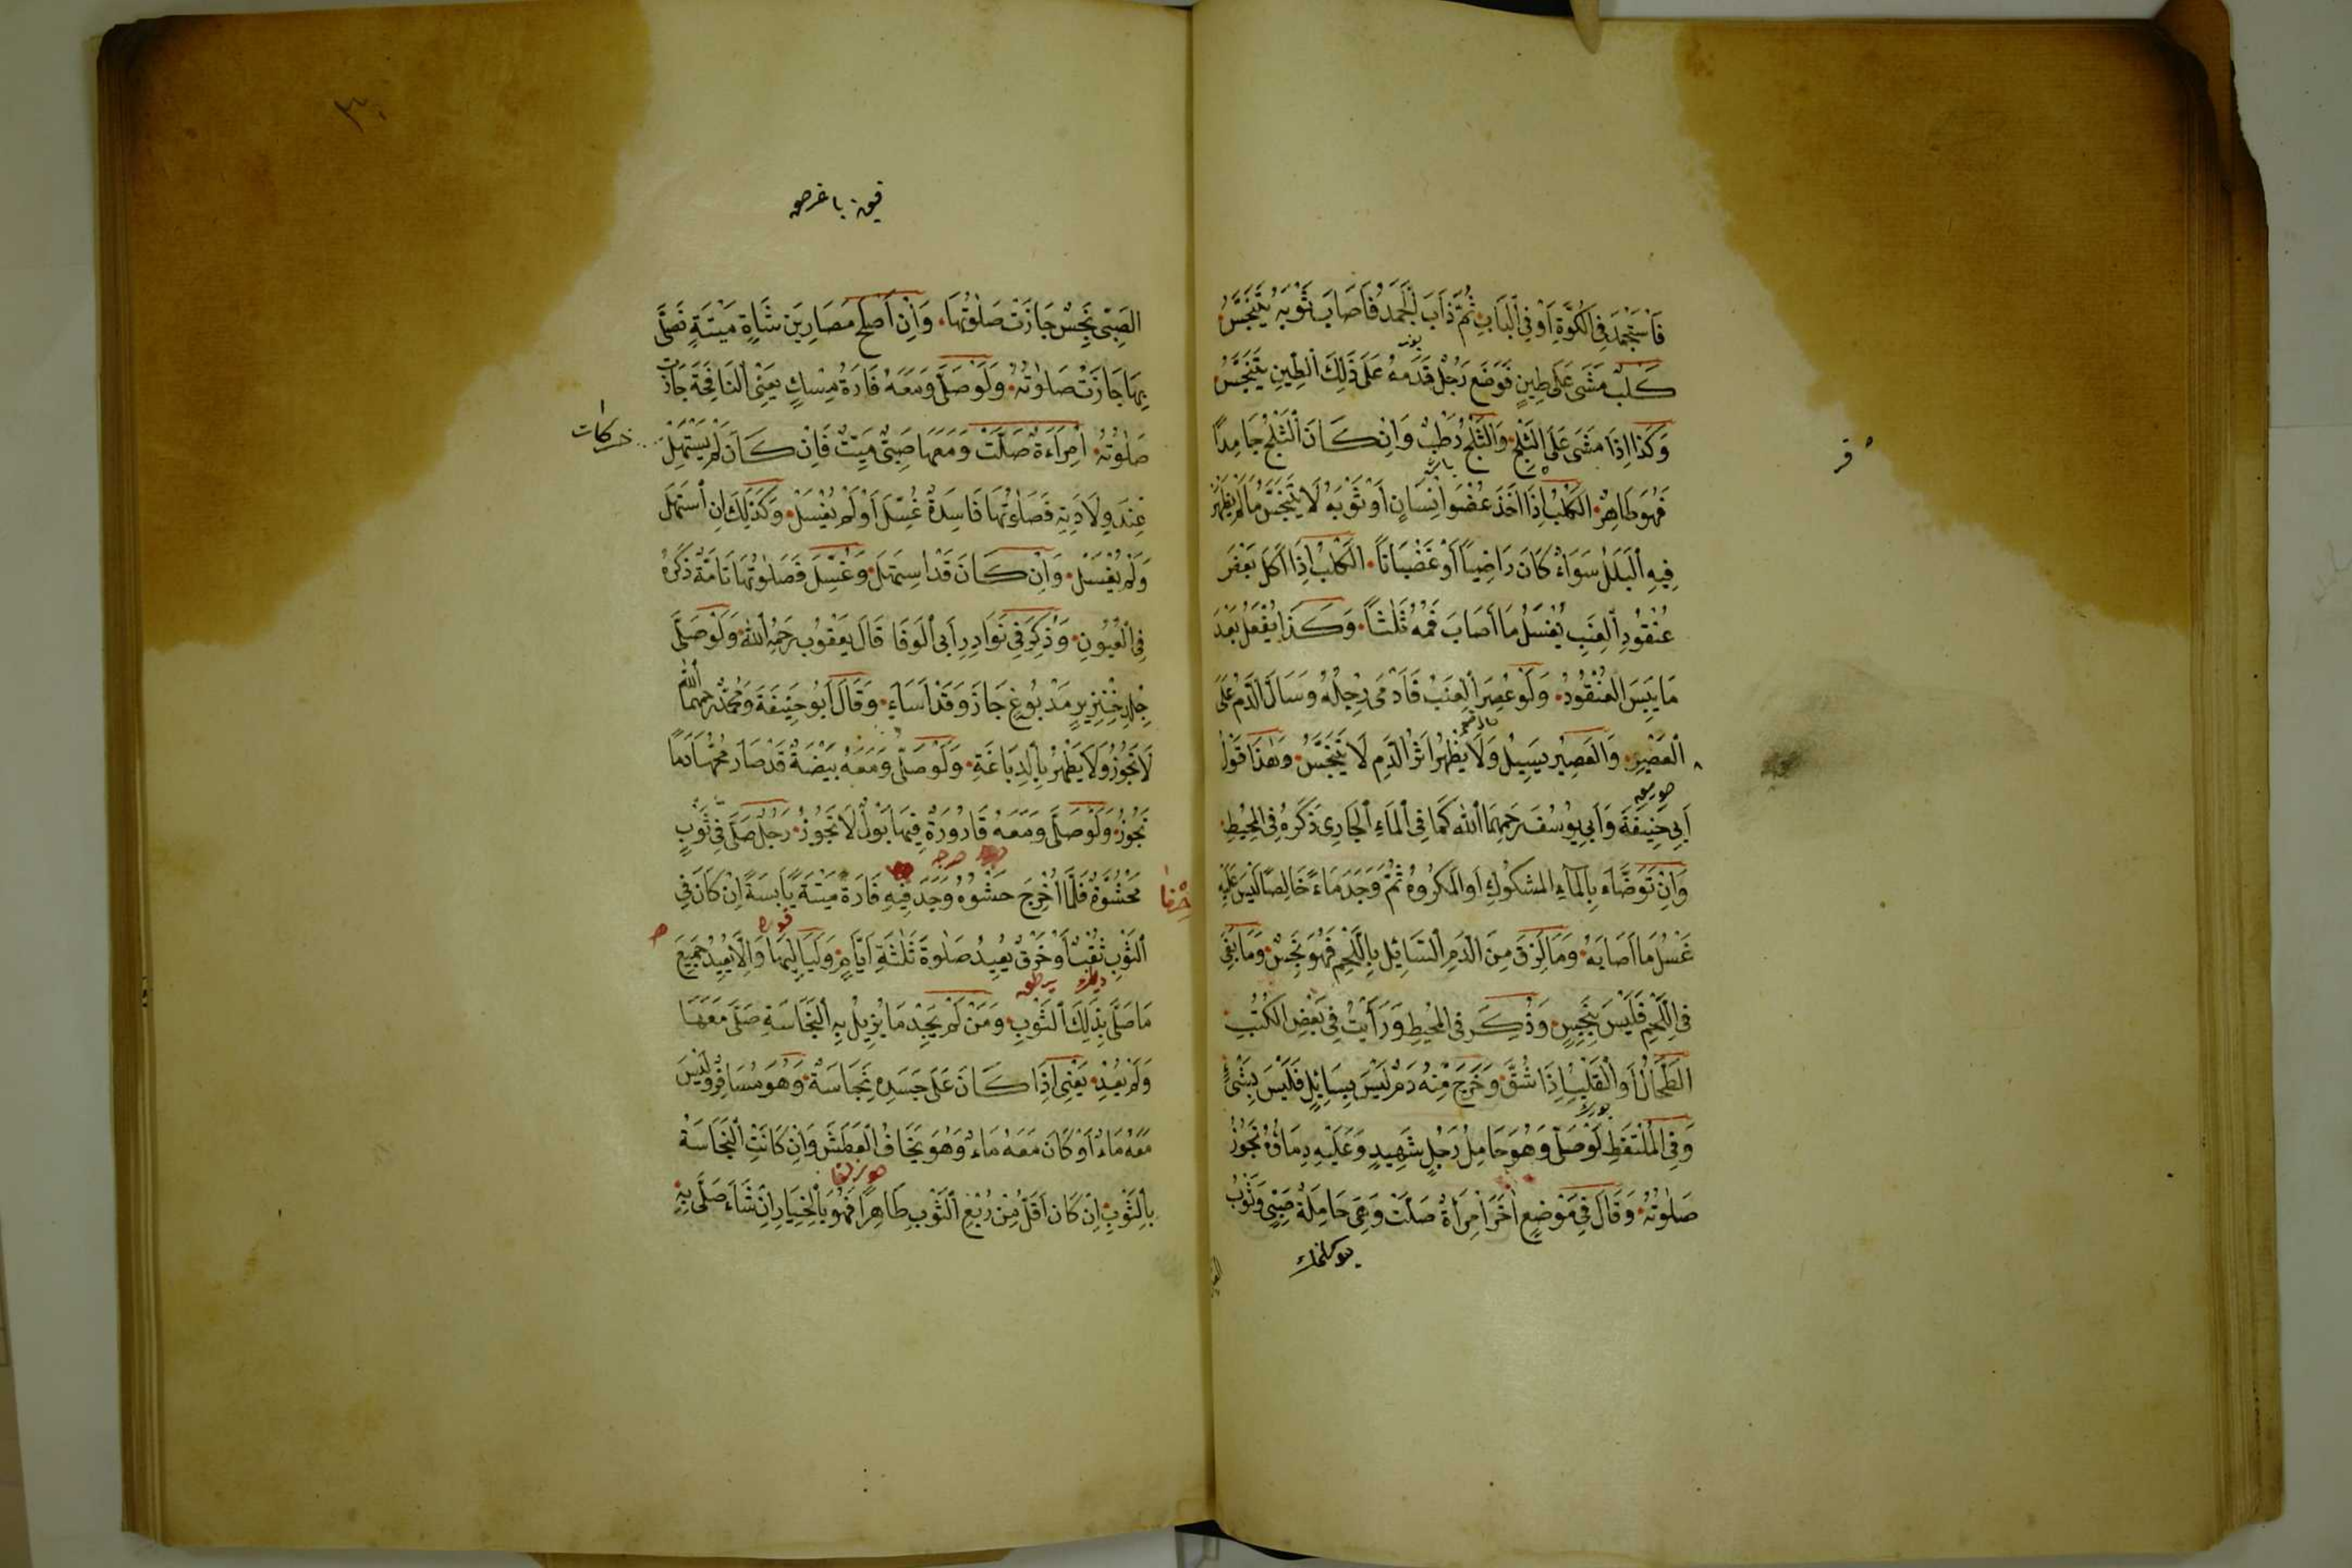 فَاسْتَجْمَدَ فِي الْكُوَّةِ أَوْ فِي الْبَابِ ثُمَّ ذَابَ الْجَمَدُ فَأَصَابَ ثَوْبَهُ يَتَنَجَّسُ
كَلْبٌ مَشَى عَلَى طِينٍ فَوَضَعَ رَجُلٌ قَدَمَهُ عَلَى ذَلِكَ الطِّينِ يَتَنَجَّسُ
وَكَذَا إِذَا مَشَى عَلَى الثَّلْجِ وَالثَّلْجُ رَطْبٌ وَإِنْ كَانَ الثَّلْجُ جَامِدًا
فَهُوَ طَاهِرٌ الْكَلْبُ إِذَا أَخَذَ عُضْوَ إِنْسَانٍ أَوْ ثَوْبَهُ لَا يَتَنَجَّسُ مَا لَمْ يَظْهَرْ
فِيهِ الْبَلَلُ سَوَاءٌ كَانَ رَاضِيًا أَوْ غَضْبَانًا الْكَلْبُ إِذَا أَكَلَ بَعْضَ
عُنْقُودِ الْعِنَبِ يُغْسَلُ مَا أَصَابَ فَمُهُ ثَلَثًا وَكَذَا يُفْعَلُ بَعْدَ
مَا يَبِسَ الْعُنْقُودُ وَلَوْ عُصِرَ الْعِنَبُ فَأَدْمَى رِجْلُهُ وَسَالَ الدَّمُ عَلَى
الْعَصِيرِ وَالْعَصِيرُ يَسِيلُ وَلَا يَظْهَرُ أَثَرُ الدَّمِ لَا يَتَنَجَّسُ وَهَذَا قَوْلُ
أَبِي حَنِيفَةَ وَأَبِي يُوسُفَ رَحِمَهُمَا اللهُ كَمَا فِي الْمَاءِ الْجَارِي ذَكَرَهُ فِي الْمُحِيطِ
وَإِنْ تَوَضَّأَ بِالْمَاءِ الْمَشْكُوكِ أَوِ الْمَكْرُوهِ ثُمَّ وَجَدَ مَاءً خَالِصًا لَيْسَ عَلَيْهِ
غَسْلُ مَا أَصَابَهُ وَمَا لَزِقَ مِنَ الدَّمِ السَّائِلِ بِاللَّحْمِ فَهُوَ نَجِسٌ وَمَا بَقِيَ
فِي اللَّحْمِ فَلَيْسَ بِنَجِسٍ وَذُكِرَ فِي الْمُحِيطِ وَرَأَيْتُ فِي بَعْضِ الْكُتُبِ
الطِّحَالُ أَوِ الْقَلْبُ إِذَا شُقَّ وَخَرَجَ مِنْهُ دَمٌ لَيْسَ بِسَائِلٍ فَلَيْسَ بِشَيْءٍ
وَفِي الْمُلْتَقَطِ لَوْ صَلَّى وَهُوَ حَامِلُ رَجُلٍ شَهِيدٍ وَعَلَيْهِ دِمَاؤُهُ تَجُوزُ
صَلٰوتُهُ وَقَالَ فِي مَوْضِعٍ أٰخَرَ امْرَأَةٌ صَلَّتْ وَهِيَ حَامِلَةُ صَبِيٍّ وَثَوْبُ
الصَّبِيِّ نَجِسٌ جَازَتْ صَلٰوتُهَا وَإِنْ أَصْلَحَ مَصَارِينَ شَاةٍ مَيْتَةٍ فَصَلَّى
بِهَا جَازَتْ صَلٰوتُهُ وَلَوْ صَلَّى وَمَعَهُ فَارَةُ مِسْكٍ يَعْنِي النَّافِجَةَ جَازَتْ
صَلٰوتُهُ امْرَأَةٌ صَلَّتْ وَمَعَهَا صَبِيٌّ مَيِّتٌ فَإِنْ كَانَ لَمْ يَسْتَهِلَّ
عِنْدَ وِلَادَتِهِ فَصَلٰوتُهَا فَاسِدَةٌ غُسِّلَ أَوْ لَمْ يُغْسَلْ وَكَذٰلِكَ إِنِ اسْتَهَلَّ
وَلَمْ يُغْسَلْ وَإِنْ كَانَ قَدِ اسْتَهَلَّ وَغُسِّلَ فَصَلٰوتُهَا تَامَّةٌ ذَكَرَهُ
فِي الْعُيُونِ وَذُكِرَ فِي نَوَادِرِ أَبِي الْوَفَا قَالَ يَعْقُوبُ رَحِمَهُ اللهُ وَلَوْ صَلَّى
جِلْدِ خِنْزِيرٍ مَدْبُوغٍ جَازَ وَقَدْ أَسَاءَ وَقَالَ أَبُو حَنِيفَةَ وَمُحَمَّدٌ رَحِمَهُمَا اللهُ
لَا تَجُوزُ وَلَا يَطْهُرُ بِالدِّبَاغَةِ وَلَوْ صَلَّى وَمَعَهُ بَيْضَةٌ قَدْ صَارَ مُحُّهَا دَمًا
تَجُوزُ وَلَوْ صَلَّى وَمَعَهُ قَارُورَةٌ فِيهَا بَوْلٌ لَا تَجُوزُ رَجُلٌ صَلَّى فِي ثَوْبٍ
مَحْشُوَّةٍ فَلَمَّا أُخْرِجَ حَشْوُهُ وَجَدَ فِيهِ فَارَةً مَيْتَةً يَابِسَةً إِنْ كَانَ فِي
الثَّوْبِ ثُقْبٌ أَوْ خَرْقٌ يُعِيدُ صَلٰوةَ ثَلٰثَةِ أَيَّامٍ وَلَيَالِيهَا وَإِلَّا يُعِيدُ جَمِيعَ
مَا صَلَّى بِذَلِكَ الثَّوْبِ وَمَنْ لَمْ يَجِدْ مَا يُزِيلُ بِهِ النَّجَاسَةَ صَلَّى مَعَهَا
وَلَمْ يُعِدْ يَعْنِي إِذَا كَانَ عَلَى جَسَدِهِ نَجَاسَةٌ وَهُوَ مُسَافِرٌ وَلَيْسَ
مَعَهُ مَاءٌ أَوْ كَانَ مَعَهُ مَاءٌ وَهُوَ يَخَافُ الْعَطَشَ وَإِنْ كَانَتِ النَّجَاسَةُ
بِالثَّوْبِ إِنْ كَانَ أَقَلُّ مِنْ رُبْعِ الثَّوْبِ طَاهِرًا فَهُوَ بِالْخِيَارِ إِنْ شَاءَ صَلَّى بِهِ